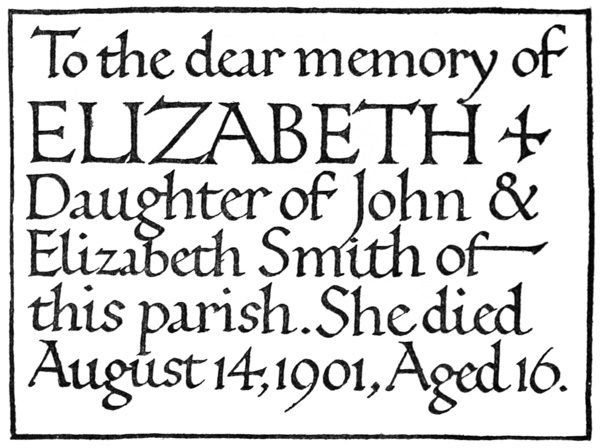 To the dear memory of
ELIZABETH ✢
Daughter of John &
Elizabeth Smith of—
this parish. She died
August 14, 1901, Aged 16.